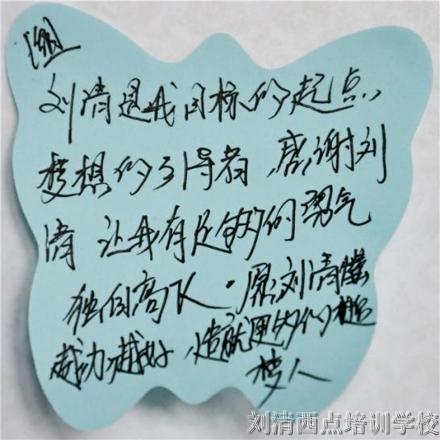 刘清是我目标的起点，
梦想的引导者，感谢刘
清 让我有足够的勇气
独自高飞，愿刘清
越办越好，造就更多的追
梦人
刘清西点培训学校